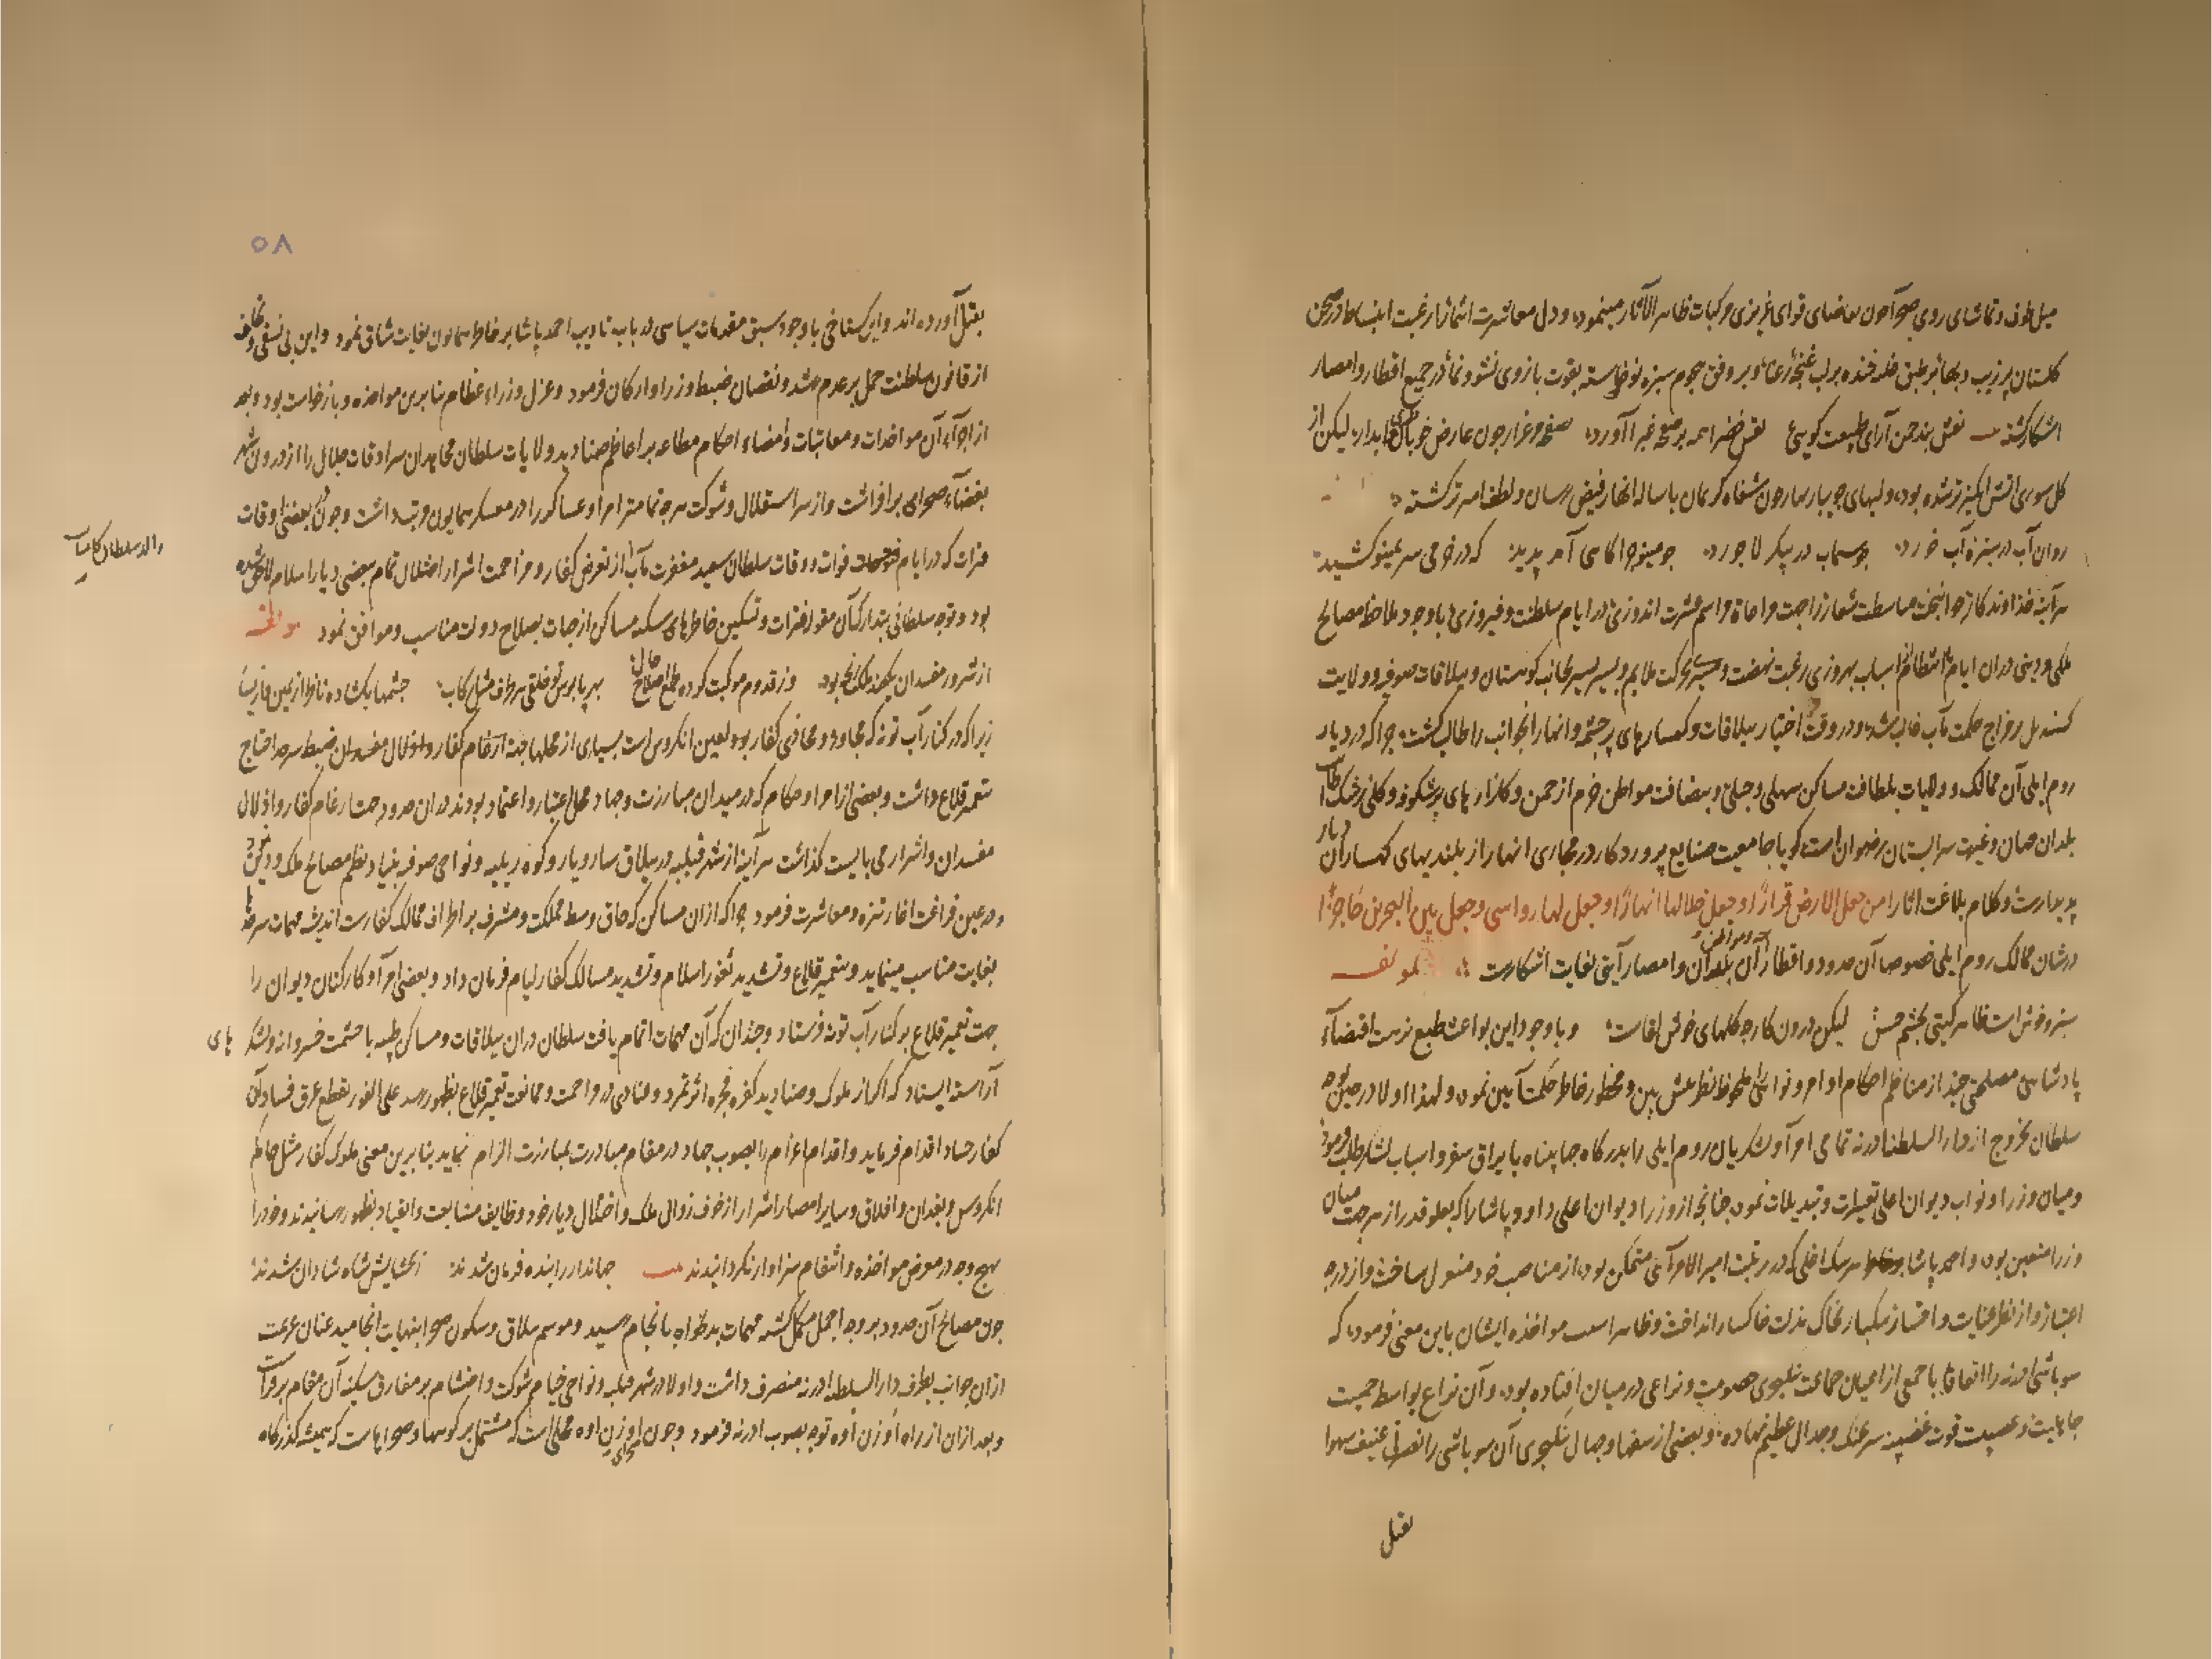 میل طوف و تماشای روی صحرا چون تقاضای قوای غریزی و مرکبات ظاهر الآثار مینمود و دل معاشرت اثما را رغبت انبساط در صحن
گلستان پر زیب و بها بر طبق خنده بر لب غنچه رعنا و بر وفق هجوم سبزه نوخاسته بقوت بازوی نشو و نما در جمیع اقطار و امصار
آشکار گشته نقش بند چمن آرای طبیعت گویی نقش خضرا همه بر صفحه غبرا آورد صفحه مرغزار چون عارض خوبان آبدار لیکن از
گل سوری آتش انگیز تر شده بود و لبهای جویبار چون شفاه کریمان باساله انهار فیض رسان و لطف امیز تر گشته
روان آب در سبزه آب خورد چو سیماب در پیکر لاجورد چو مینو چراگاهی آمد پدید که در خرمی سر بمینو کشید
هر آینه خداوندگار جوانبخت مراعاة مراسم عشرت اندوزی در ایام سلطنت و فیروزی با وجود ملاحظه مصالح
ملکی و دینی در آن ایام انتظام اسباب بهروزی رغبت نهضت و حرکت ملایم و سیر بجانب کوهستان و ییلاقات صوفیه و ولایت
مزاج حکمت مآب غالب شد و در وقت اختیار ییلاقات و کهسارهای پر چشمه و انهار آن جوانب را طالب گشت چرا که در دیار
روم ایلی آن ممالک و ولایات بلطافت مساکن سهلی و جبلی و بمضافت مواطن خرم از چمن و گلزارهای پر شکوفه و گلی رشک
بلدان جهان و غیرت سرابستان رضوان است گویا جامعیت صنایع پروردگار در مجاری انهار از بلندیهای کهسار آن دیار
بعبارت و کلام بلاغت اثار امن جعل الارض قرارًا و جعل خلالها انهارًا و جعل لها رواسی و جعل بین البحرین حاجزًا
در شأن ممالک روم ایلی خصوصا آن حدود و اقطار آن بلدان و امصار آیتی بغایت آشکارست لمؤلفه
سبز و خوش است ظاهر گیتی بچشم حس لیکن درون کار چو گلهای خوش لقاست و با وجود این بواعث طبع نزهت اقتضاء
پادشاهی مصلحتی چند از مناظم احکام اوامر و نواهی ملحوظ نظر پیش بین و محظور خاطر حکمت آیین نمود و لهذا اولا در حین توجه
سلطان بخروج از دار السلطنه ادرنه تمامی امرا و لشکریان روم ایلی را بدرگاه جهان پناه با یراق سفر و اسباب لشکر طلب فرمود
و میان وزرا و نواب دیوان اعلی تغییرات و تبدیلات نمود چنانچه از وزراء دیوان اعلی داود پاشا را که بعلو قدر از هر جهت میان
وزرا متعین بود و احمد پاشا که در رتبت امیر الامرائی متمکن بود از مناصب خود معزول ساخت و از درجه
اعتبار و از نظر عنایت و اختیار بخاک مذلت خاکسار انداخت و ظاهرا سبب مؤاخذه ایشان باین معنی فرموده که
سوباشی ادرنه را اتفاقا با جمعی از اعیان جماعت ینکچری خصومت و نزاعی در میان افتاده بود و آن نزاع بواسطه حمیت
جاهلیت و عصبیت قوت غضبیه سر بجنگ و جدال عظیم نهاده و بعضی از سفها و جهال ینکچری آن سوباشی را بضرب عنیف سهوا
بقتل
٥٨
بقتل آورده اند و این گستاخی با وجود سبق مقدمات سیاسی در باب تادیب احمد پاشا بر خاطر همایون بغایت شاق نمود و این بی نسقی و تخلف
از قانون سلطنت حمل بر عدم رشد و نقصان ضبط وزرا و ارکان فرمود و عزل وزراء عظام بنا برین مواخذه و بازخواست بود و بعد
از اجراء آن مواخذات و معاتبات و امضاء احکام مطاعه بر اعاظم صنادید ولایات سلطان مجاهدان سرادقات جلال را از درون شهر
بفضاء صحرا بر افراشت و از سر استقلال و شوکت هر چه تمامتر امرا و عساکر را در معسکر همایون مرتب داشت و چون بعضی اوقات
فترات که در ایام فوات و وفات سلطان سعید مغفرت مآب از تعرض کفار و مزاحمت اشرار اختلال تمام ببعضی دیار اسلام لاحق شده
والد سلطان کامیاب
بود و توجه سلطانی بتدارک آن مقوله فترات و تسکین خاطرهای سکنه مساکن از جهات بصلاح دولت مناسب و موافق نمود لمؤلفه
از شرور مفسدان ملک رنجه بود وز قدوم موکبت کرده طمع اصلاح حال بهر پابوس تو خلقی هر طرف مثل رکاب چشمها بگشاده
زیرا که در کنار آب تونه که مجاور و محاذی کفار بد لعین انکروس است بسیاری از محلها جهت ارغام کفار و اذلال مفسدان ضبط سرحد احتیاج
بتعمیر قلاع داشت و بعضی از امرا و حکام که در میدان مبارزت و جهاد محل اعتبار و اعتماد بودند در آن حدود جهت ارغام کفار و اذلال
مفسدان و اشرار می بایست گذاشت هر آینه از شهر فیلبه در ییلاق سارو یار و کوه ریله و نواحی صوفیه بنیاد نظم مصالح ملک و دین نمود
و در عین فراغت اغاز تنزه و معاشرت فرمود چرا که از آن مساکن که حاق وسط مملکت و مشرف بر اطراف ممالک کفارست اندیشه مهمات سرحدها
بغایت مناسب مینماید و بتعمیر قلاع و تشدید ثغور اسلام و تشدید مسالک کفار لیام فرمان داد و بعضی امرا و کارکنان دیوان را
جهت تعمیر قلاع بر کنار آب تونه فرستاد و چندان که آن مهمات اتمام یافت سلطان در آن ییلاقات و مساکن طیبه با حشمت خسروانه و لشکر های
آراسته ایستاد که اگر از ملوک و صنادید کفره فجره اثر تمرد و عنادی در مزاحمت و ممانعت تعمیر قلاع بظهور رسد علی الفور بقطع عرق فساد آن
کفار حساد اقدام فرماید و اقدام اعزام را بصوب جهاد در مقام مبادرت بمبارزت الزام نماید بنا برین معنی ملوک کفار مثل حاکم
انکروس و بغدان و افلاق و سایر امصار اشرار از خوف زوال ملک و اختلال دیار خود وظایف متابعت و انقیاد بظهور رسانیدند و خود را
بهیچ وجه در معرض مواخذه و انتقام سزاوار نگردانیدند جهاندار را بنده فرمان شدند ز بخشایش شاه شادان شدند
چون مصالح آن حدود بر وجه اجمل مکمل گشته مهمات بدلخواه بانجام رسید و موسم ییلاق و سکون صحرا بنهایت انجامید عنان عزیمت
از آن جوانب بطرف دار السلطنه ادرنه منصرف داشت و اولا در شهر فیلبه و نواحی خیام شوکت و احتشام بر مفارق سکنه آن مقام بر افراشت
و بعد از آن از راه اوزن اوه توجه بصوب ادرنه فرمود و چون صحرای اوزن اوه محلی است که مشتمل بر کوهها و صحراهاست که همیشه گذرگاه